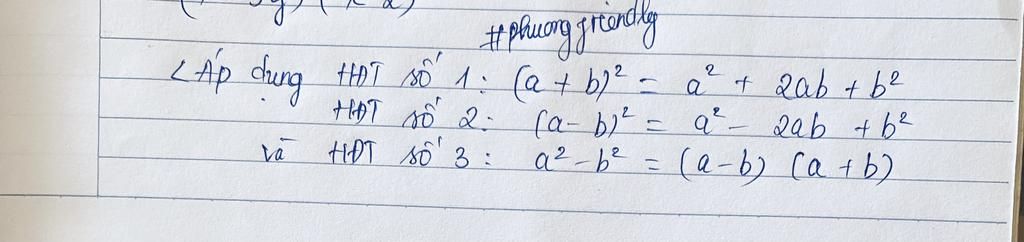 #phuong friendly
< Áp dụng HĐT số 1: (a + b)² = a² + 2ab + b²
HĐT số 2: (a - b)² = a² - 2ab + b²
và HĐT số 3: a² - b² = (a - b) (a + b)